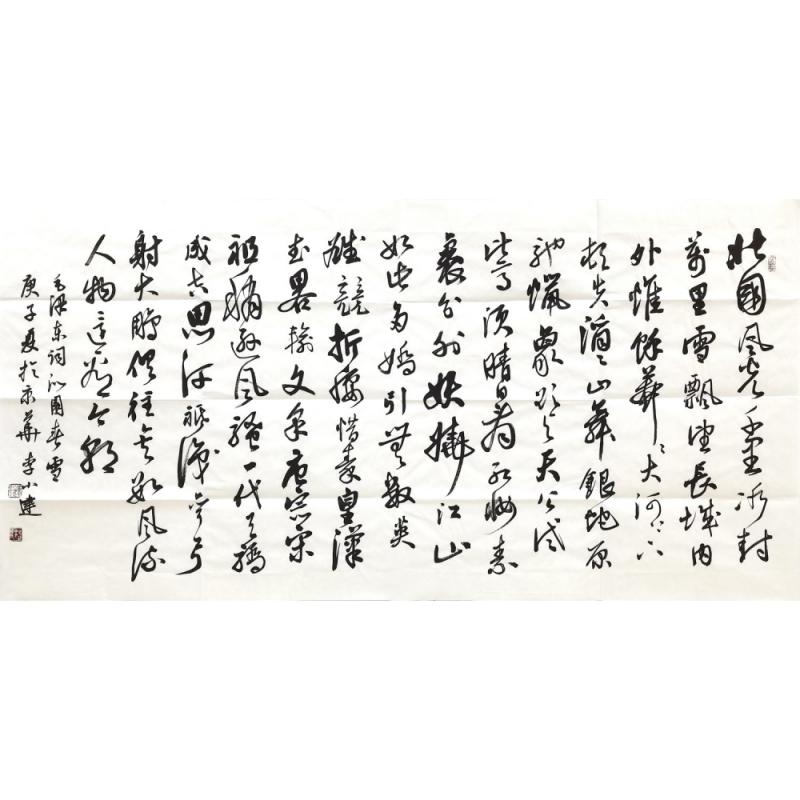 北國風光千里冰封
萬里雪飄望長城内
外惟餘莽〻大河上下
頓失滔〻山舞銀蛇原
馳蠟象欲与天公試
比高須晴日看紅妝素
裹分外妖嬈江山
如此多嬌引無數英
雄競折腰惜秦皇漢
武略輸文采唐宗宋
祖稍遜風騷一代天驕
成吉思汗祇識彎弓
射大鵰俱往矣數風流
人物還看今朝
毛澤东詞沁園春雪
庚子夏於京華李小